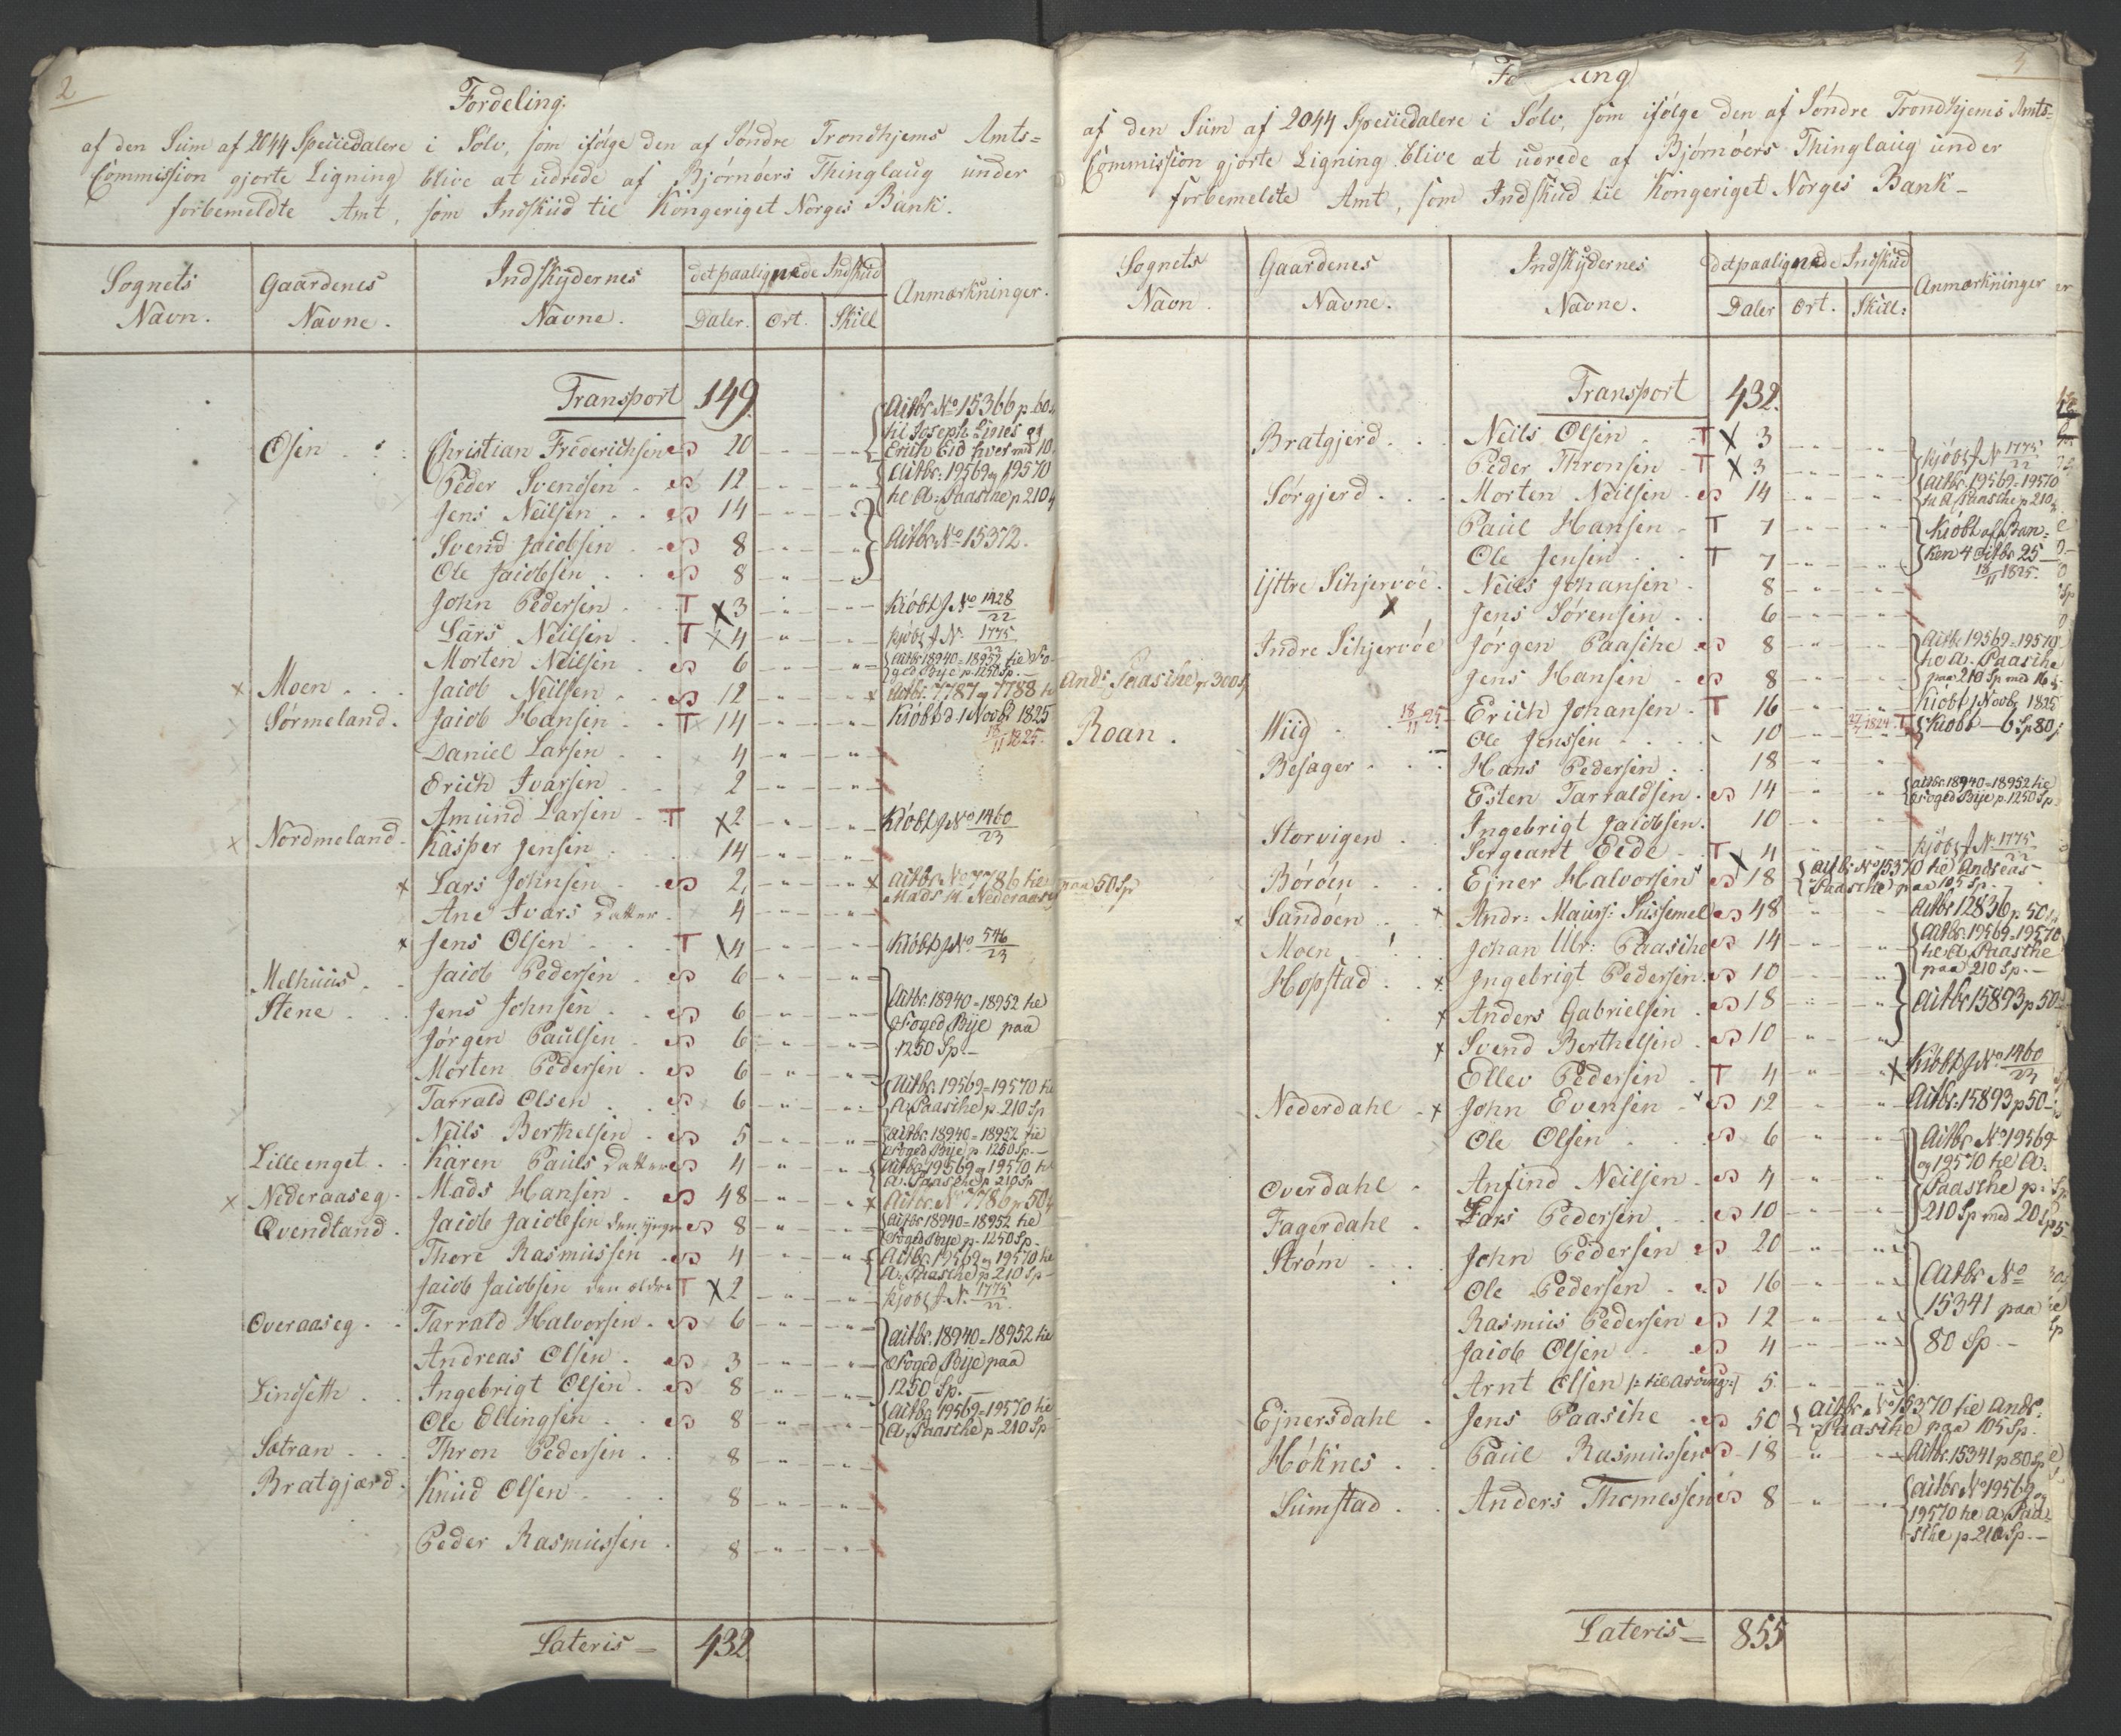 2
Fordeling.
af den Sum af 2044 Speciedalere i Sølv, som ifølge den af Søndre Trondhjems Amts=
Commission gjorte Ligning blive at udrede af Bjørnøers Thinglaug under
forbemeldte Amt, som Indskud til Kongeriget Norges Bank.
Sognets Navn. Gaardenes Navne. Indskydernes Navne. det paalignede Indskud Anmærkninger.
Daler. Ort. Skill
Transport 149.
Aitbr No 15366 p. 60
til Joseph Lines og
Osen Christian Friderichsen 20 Erich Eid hver med 10
Peder Svendsen 12 Aitbr: 19569 og 19570
Jens Neilsen 14 til A. Paasche p 210
Svend Jacobsen 8 Aitbr No 15372.
Ole Jacobsen 8
John Pedersen T X 3 Kiøbt J No 1428/22
Lars Neilsen T X 4 Kjøbt J N. 1775/22
Morten Neilsen 6 Aitbr 18940=18952 til Foged Bye p. 1250 Sp.
x Moen Jacob Neilsen 12 x Aitbr. 7787 og 7788
Sørmeland Jacob Hansen T 14 Kiøbt d 1 Novbr 1825
18/11 1825.
Daniel Larsen 4
Erich Ivarsen 2
Amund Larsen T X 2 Kiøbt J No 1460/23
x Nordmeland Kasper Jensen 14
x Lars Johnsen 2 x Aitbr. No 7786 til
Mads H. Nederaaseg paa 50 Sp
Ane Ivars Datter 4
x Jens Olsen T X 4 Kiøbt J No 546/23
Melhuus Jacob Pedersen 6
Stene Jens Johnsen 6 Aitbr. 18940=18952 til
Jørgen Paulsen 6 Foged Bye paa
Morten Pedersen 6 1250 Sp.
Tarrald Olsen 6 Aitbr. 19569=19570 til A. Paasche p. 210 Sp
Neils Berthelsen 5 Aitbr. 18940=18952 til Foged Bye p 1250 Sp.
Lilleenget Karen Pauls Datter 4 Aitbr 19569 og 19570 til A. Paasche p 210 Sp
x Nederaaseg Mads Hansen 48 x Aitbr. No 7786 p 50
Qvendtland Jacob Jacobsen den yngre 8 Aitbr 18940=18952 til Foged Bye p. 1250 Sp.
Thore Rasmussen 4 Aitbr. 19569 og 19570 til A. Paasche p 210 Sp
Jacob Jacobsen den ældre T X 2 Kjøbt J. N. 1775/22.
Overaaseg Tarrald Halvorsen 6 Aitbr. 18940=18952 til
Andreas Olsen 3 Foged Bye paa
Lindseth Ingebrigt Olsen 8 1250 Sp.
Ole Ellingsen 8 Aitbr 19569=19570 til A. Paasche p 210 Sp
Sætran Thron Pedersen 8
Bratgjærd Knud Olsen 8
Peder Rasmussen 8
Lateris= 432

3
Fo ling
af den Sum af 2044 Speciedalere i Sølv, som ifølge den af Søndre Trondhjems Amts=
Commission gjorte Ligning blive at udrede af Bjørnøers Thinglaug under
forbemeldte Amt, som Indskud til Kongeriget Norges Bank
Sognets Navn. Gaardenes Navne. Indskydernes Navne. det paalignede Indskud Anmærkninger
Daler Ort. Skill:
Transport 432.
Bratgjerd Neils Olsen T X 3
Peder Thronsen T X 3 Kjøbt J N 1775/22
Sørgjerd Morten Neilsen 14 Aitbr. 19569=19570 til A. Paasche p 210
Paul Hansen T 7 Kiøbt af Ban=
Ole Jensen T 7 ken 4 Aitbr 25
18/11 1825.
Yttre Schjervøe Neils Johansen 8
X Jens Sørensen 6
Indre Schjervøe Jørgen Paasche 8 Aitbr. 19569=19570 til A. Paasche
Andr Paasche p 300 Jens Hansen 8 paa 210 Sp med 16
Roan. Wiig 18/11 25 Erich Johansen T 16 Kiøbt 1 Novbr 1825
Ole Jenssen 10 1824 T Kiøbt 6 Sp 80
Besager Hans Pedersen 18
Esten Tarraldsen 14 Aitbr. 18940=18952 til Foged Bye p. 1250 Sp
Storvigen Ingebrigt Jacobsen 10
Sergeant Eede T X 4 Kjøbt J N. 1775/22
Børøen Ejner Halvorsen 18 Aitbr. No 15370 til Andreas Paasche paa 105 Sp.
x Sandøen x Andr: Maurs: Sussemel 48 Aitbr 12836 p. 50
Moen Johan Ulr: Paasche 14 Aitbr. 19569=19570 til A. Paasche
Hopstad x Ingebrigt Pedersen 10 paa 210 Sp.
x Anders Gabrielsen 18 Aitbr 15893 p. 50
x Svend Berthelsen 10
Ellev Pedersen T 4 X Kiøbt J No 1460/23
Nederdahl x John Evensen 12 Aitbr. 15893 p 50
Ole Olsen 6 Aitbr No 19569
og 19570 til A.
Overdahl Anfind Neilsen 4 Paasche p.
Fagerdahl Lars Pedersen 10 210 Sp med 20 Sp
Strøm John Pedersen 20
Ole Pedersen 16 Aitbr No
Rasmus Pedersen 12 15341 paa
Jacob Olsen 4 80 Sp.
Arnt Olsen 5
Ejnersdahl Jens Paasche 50 Aitbr. No 15370 til Andr: Paasche paa 105 Sp.
Høknes Paul Rasmussen 18 Aitbr. 15341 p 80 Sp
Sumstad Anders Thomessen 8 Aitbr No 19569 og
19570 til A. Paa=
sche p 210 Sp.
Lateris= 855